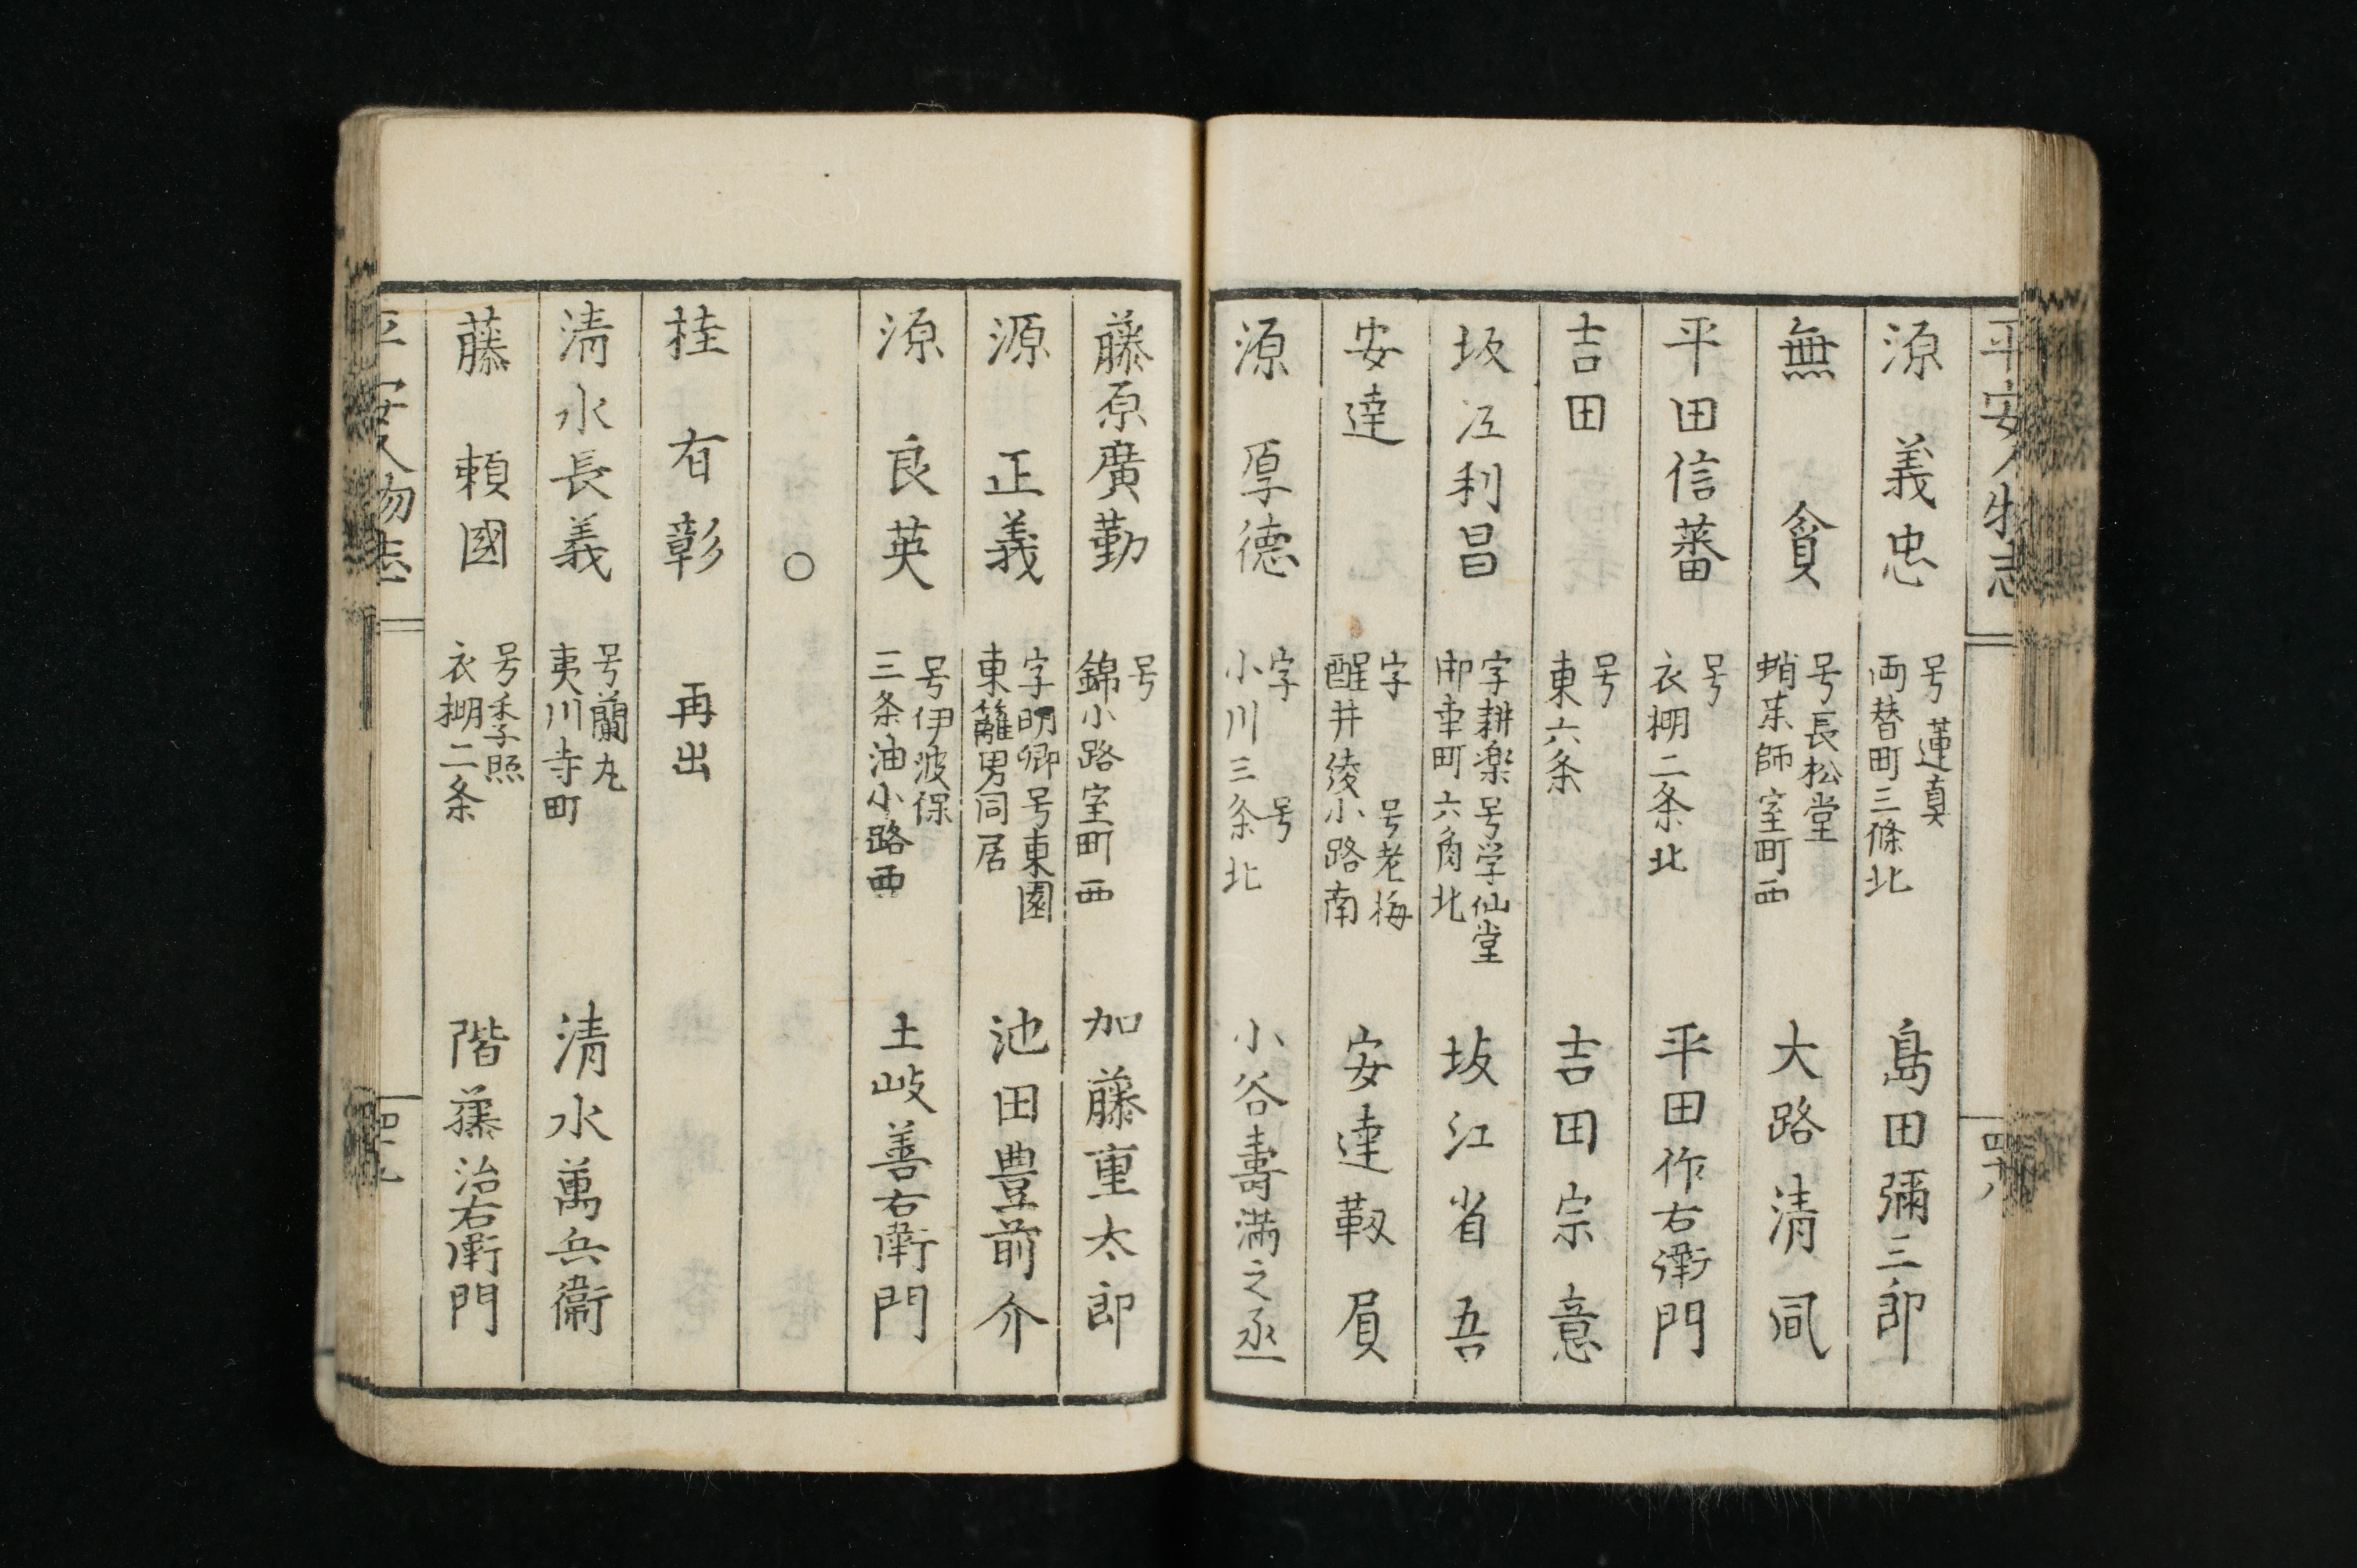 平安人物志
四十八
源 義忠 号蓮真 両替町三條北 島田彌三郎
無 貪 号長松堂 蛸茱師室町西 大路清洞
平田信蕃 号 衣棚二条北 平田作右衛門
吉田 号 東六条 吉田宗意
坂江利昌 字耕楽 号学仙堂 車町六角北 坂江省吾
安達 字 号老梅 醒井綾小路南 安達靱負
源 厚徳 字 号 小川三条北 小谷壽満之丞
藤原廣勤 号 錦小路室町西 加藤重太郎
源 正義 字明卿 号東園 東籬男同居 池田豊前介
源 良英 号伊波保 三条油小路西 土岐善右衛門
○
桂 有彰 再出
清水長義 号蘭丸 夷川寺町 清水萬兵衛
藤 頼國 号季照 衣棚二条 階藤治右衛門
平安人物志
四十九